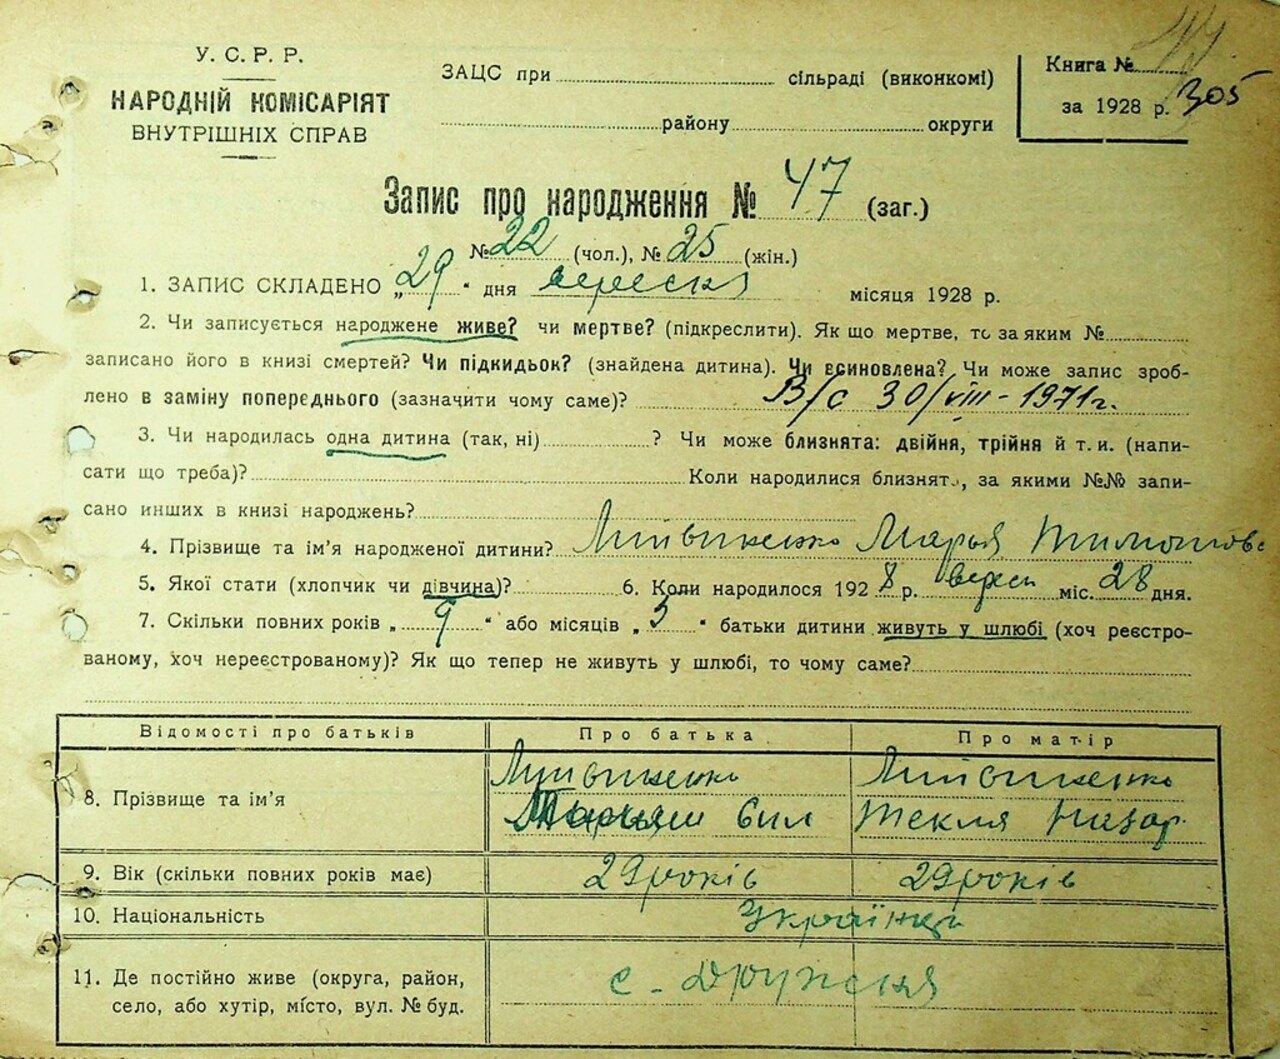 У. С. Р. Р.
НАРОДНІЙ КОМІСАРІЯТ
ВНУТРІШНІХ СПРАВ
ЗАЦС при сільраді (виконкомі)
району округи
Книга №
за 1928 р. 305
Запис про народження № 47 (заг.)
№ 22 (чол.), № 25 (жін.)
1. ЗАПИС СКЛАДЕНО „29“ дня вересня місяця 1928 р.
2. Чи записується народжене живе? чи мертве? (підкреслити). Як що мертве, то за яким №
записано його в книзі смертей? Чи підкидьок? (знайдена дитина). Чи всиновлена? Чи може запис зроб-
лено в заміну попереднього (зазначити чому саме)? В/с 30/VIII - 1971г.
3. Чи народилась одна дитина (так, ні) ? Чи може близнята: двійня, трійня й т. и. (напи-
сати що треба)? Коли народилися близнята, за якими №№ запи-
сано инших в книзі народжень?
4. Прізвище та ім’я народженої дитини? Литвиненко Марья Тимошовс
5. Якої стати (хлопчик чи дівчина)? 6. Коли народилося 1928 р. вересн міс. 28 дня.
7. Скільки повних років „9“ або місяців „3“ батьки дитини живуть у шлюбі (хоч реєстро-
ваному, хоч нереєстрованому)? Як що тепер не живуть у шлюбі, то чому саме?
Відомості про батьків Про батька Про матір
Литвиненко Литвиненко
8. Прізвище та ім’я Текля Назар
9. Вік (скільки повних років має) 29 років 29 років
10. Національність Українці
11. Де постійно живе (округа, район,
село, або хутір, місто, вул. № буд. с -